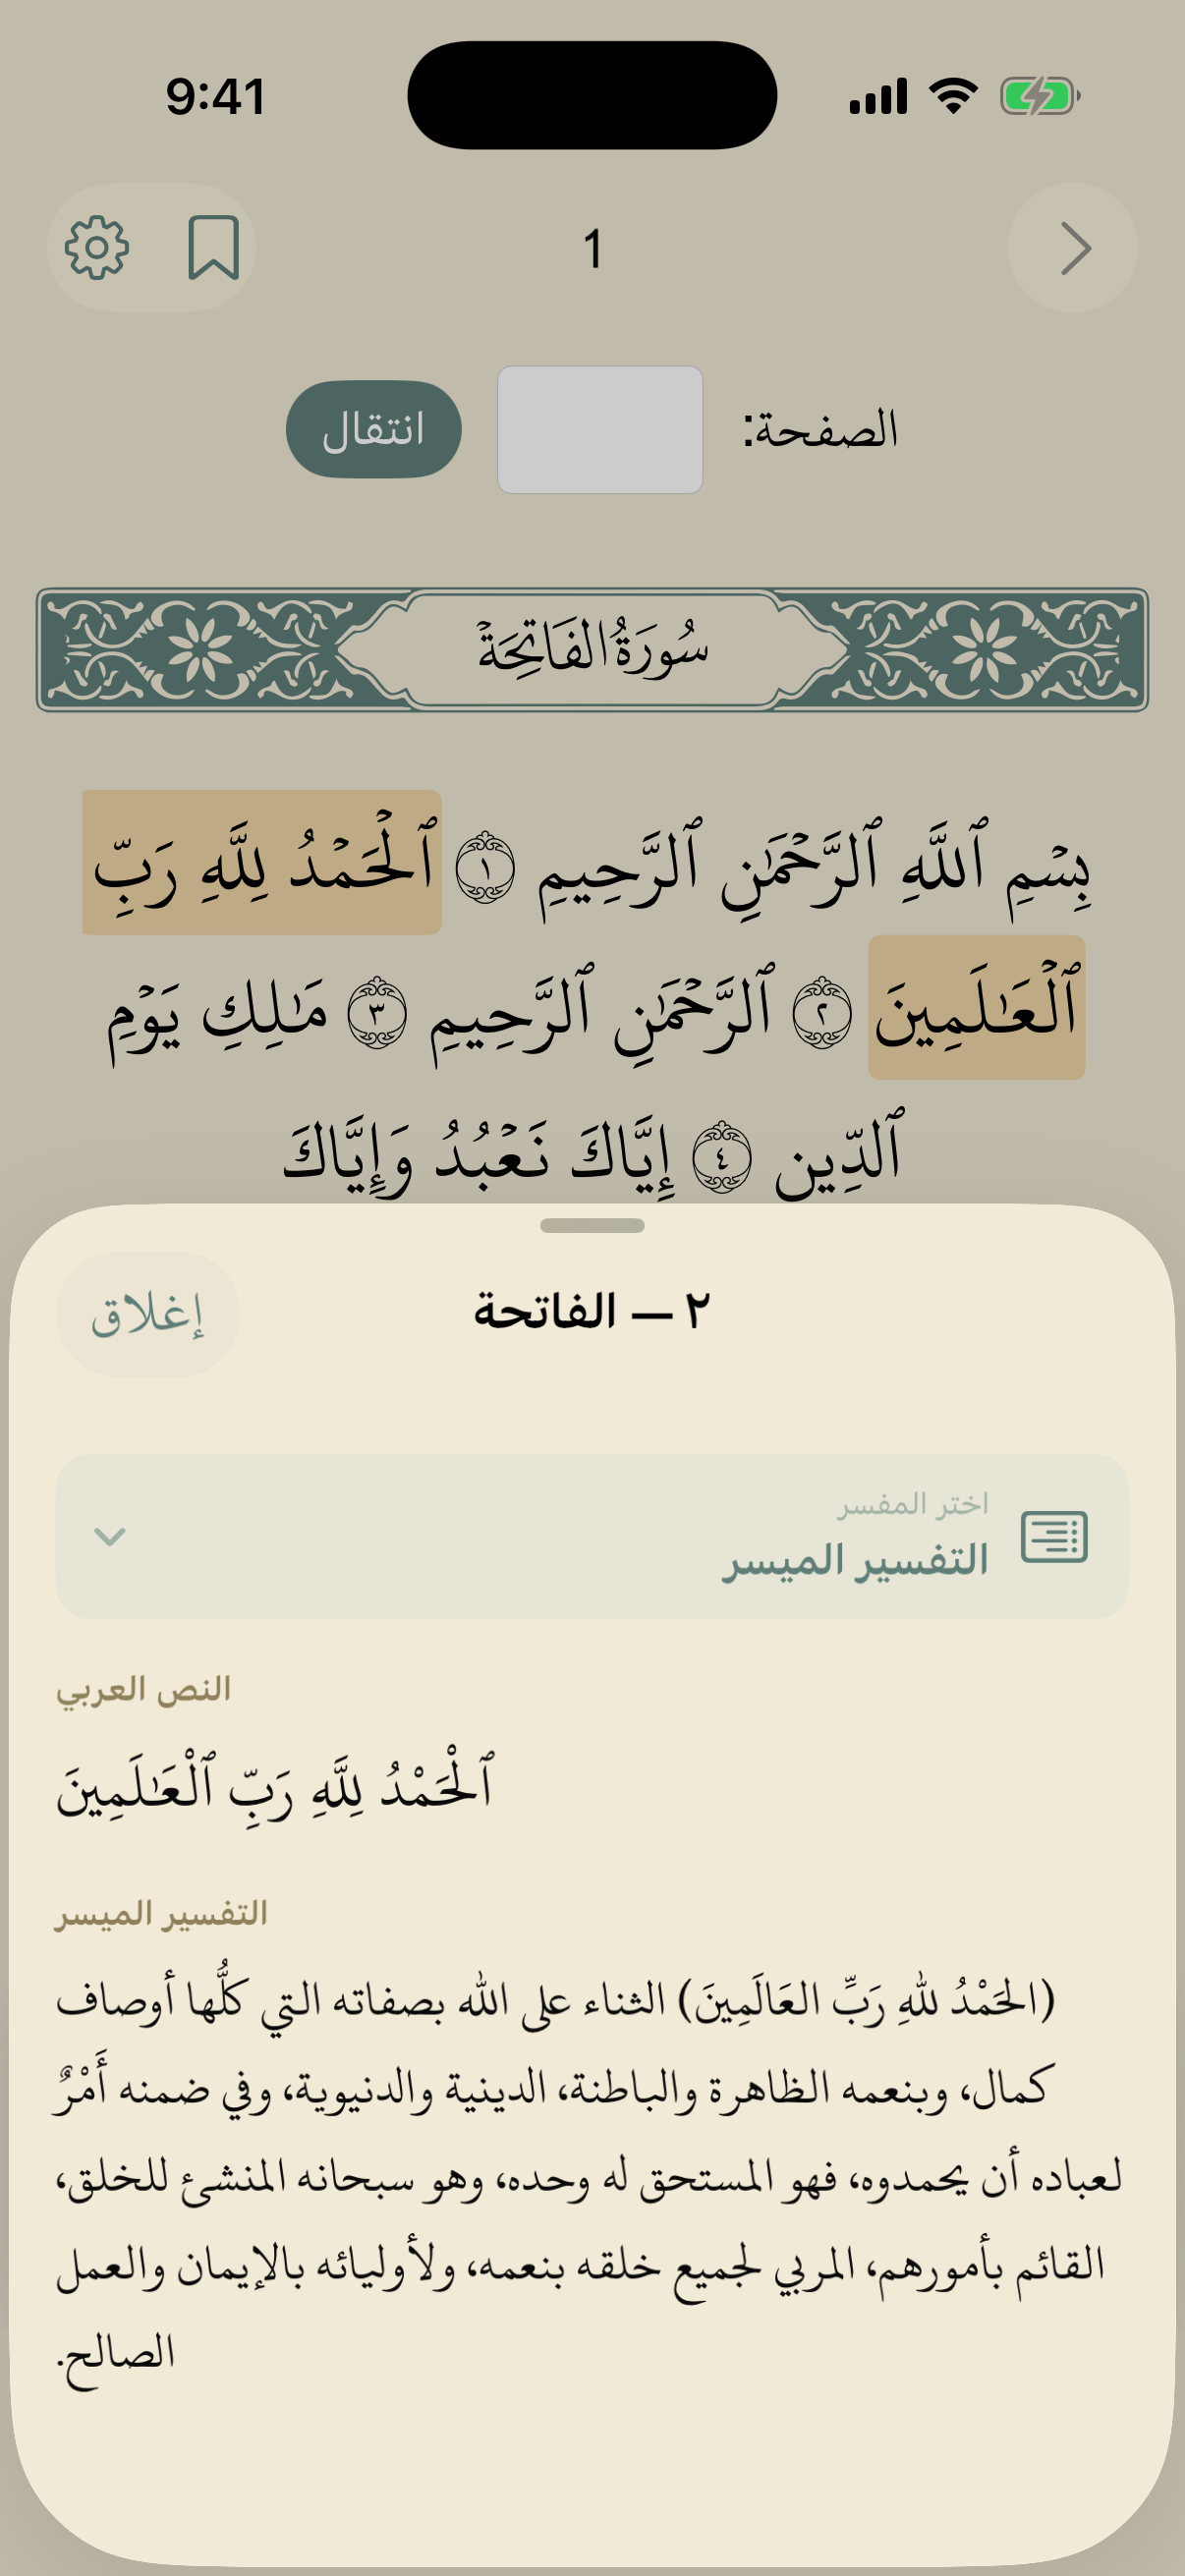 9:41
1
الصفحة:
انتقال
سُورَةُ الفَاتِحَةِ
بِسۡمِ ٱللَّهِ ٱلرَّحۡمَٰنِ ٱلرَّحِيمِ ١ ٱلۡحَمۡدُ لِلَّهِ رَبِّ
ٱلۡعَٰلَمِينَ ٢ ٱلرَّحۡمَٰنِ ٱلرَّحِيمِ ٣ مَٰلِكِ يَوۡمِ
ٱلدِّينِ ٤ إِيَّاكَ نَعۡبُدُ وَإِيَّاكَ
٢ — الفاتحة
إغلاق
اختر المفسر
التفسير الميسر
النص العربي
ٱلْحَمْدُ لِلَّهِ رَبِّ ٱلْعَٰلَمِينَ
التفسير الميسر
(الحَمْدُ للهِ رَبِّ العَالَمِينَ) الثناء على الله بصفاته التي كلُّها أوصاف
كمال، وبنعمه الظاهرة والباطنة، الدينية والدنيوية، وفي ضمنه أَمْرٌ
لعباده أن يحمدوه، فهو المستحق له وحده، وهو سبحانه المنشئ للخلق،
القائم بأمورهم، المربي لجميع خلقه بنعمه، ولأوليائه بالإيمان والعمل
الصالح.